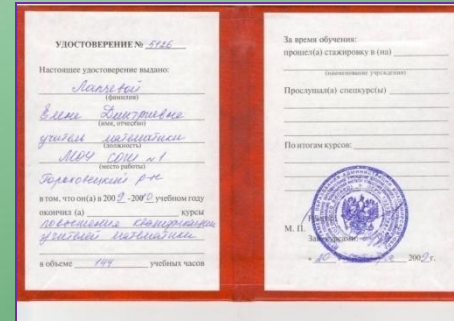 УДОСТОВЕРЕНИЕ № 5126
Настоящее удостоверение выдано:
Лапчевой
(фамилия)
Елене Дмитриевне
(имя, отчество)
учитель математики
(должность)
МОУ СОШ №1
(место работы)
Гороховецкий р-н
в том, что он(а) в 2009 -2010 учебном году
окончил (а) курсы
повышения квалификации
учителей математики
в объеме 144 учебных часов
За время обучения:
прошел(а) стажировку в (на)
(наименование учреждения)
Прослушал(а) спецкурс(ы)
По итогам курсов:
М. П.
Ректор
Зав. курсами
2009г.